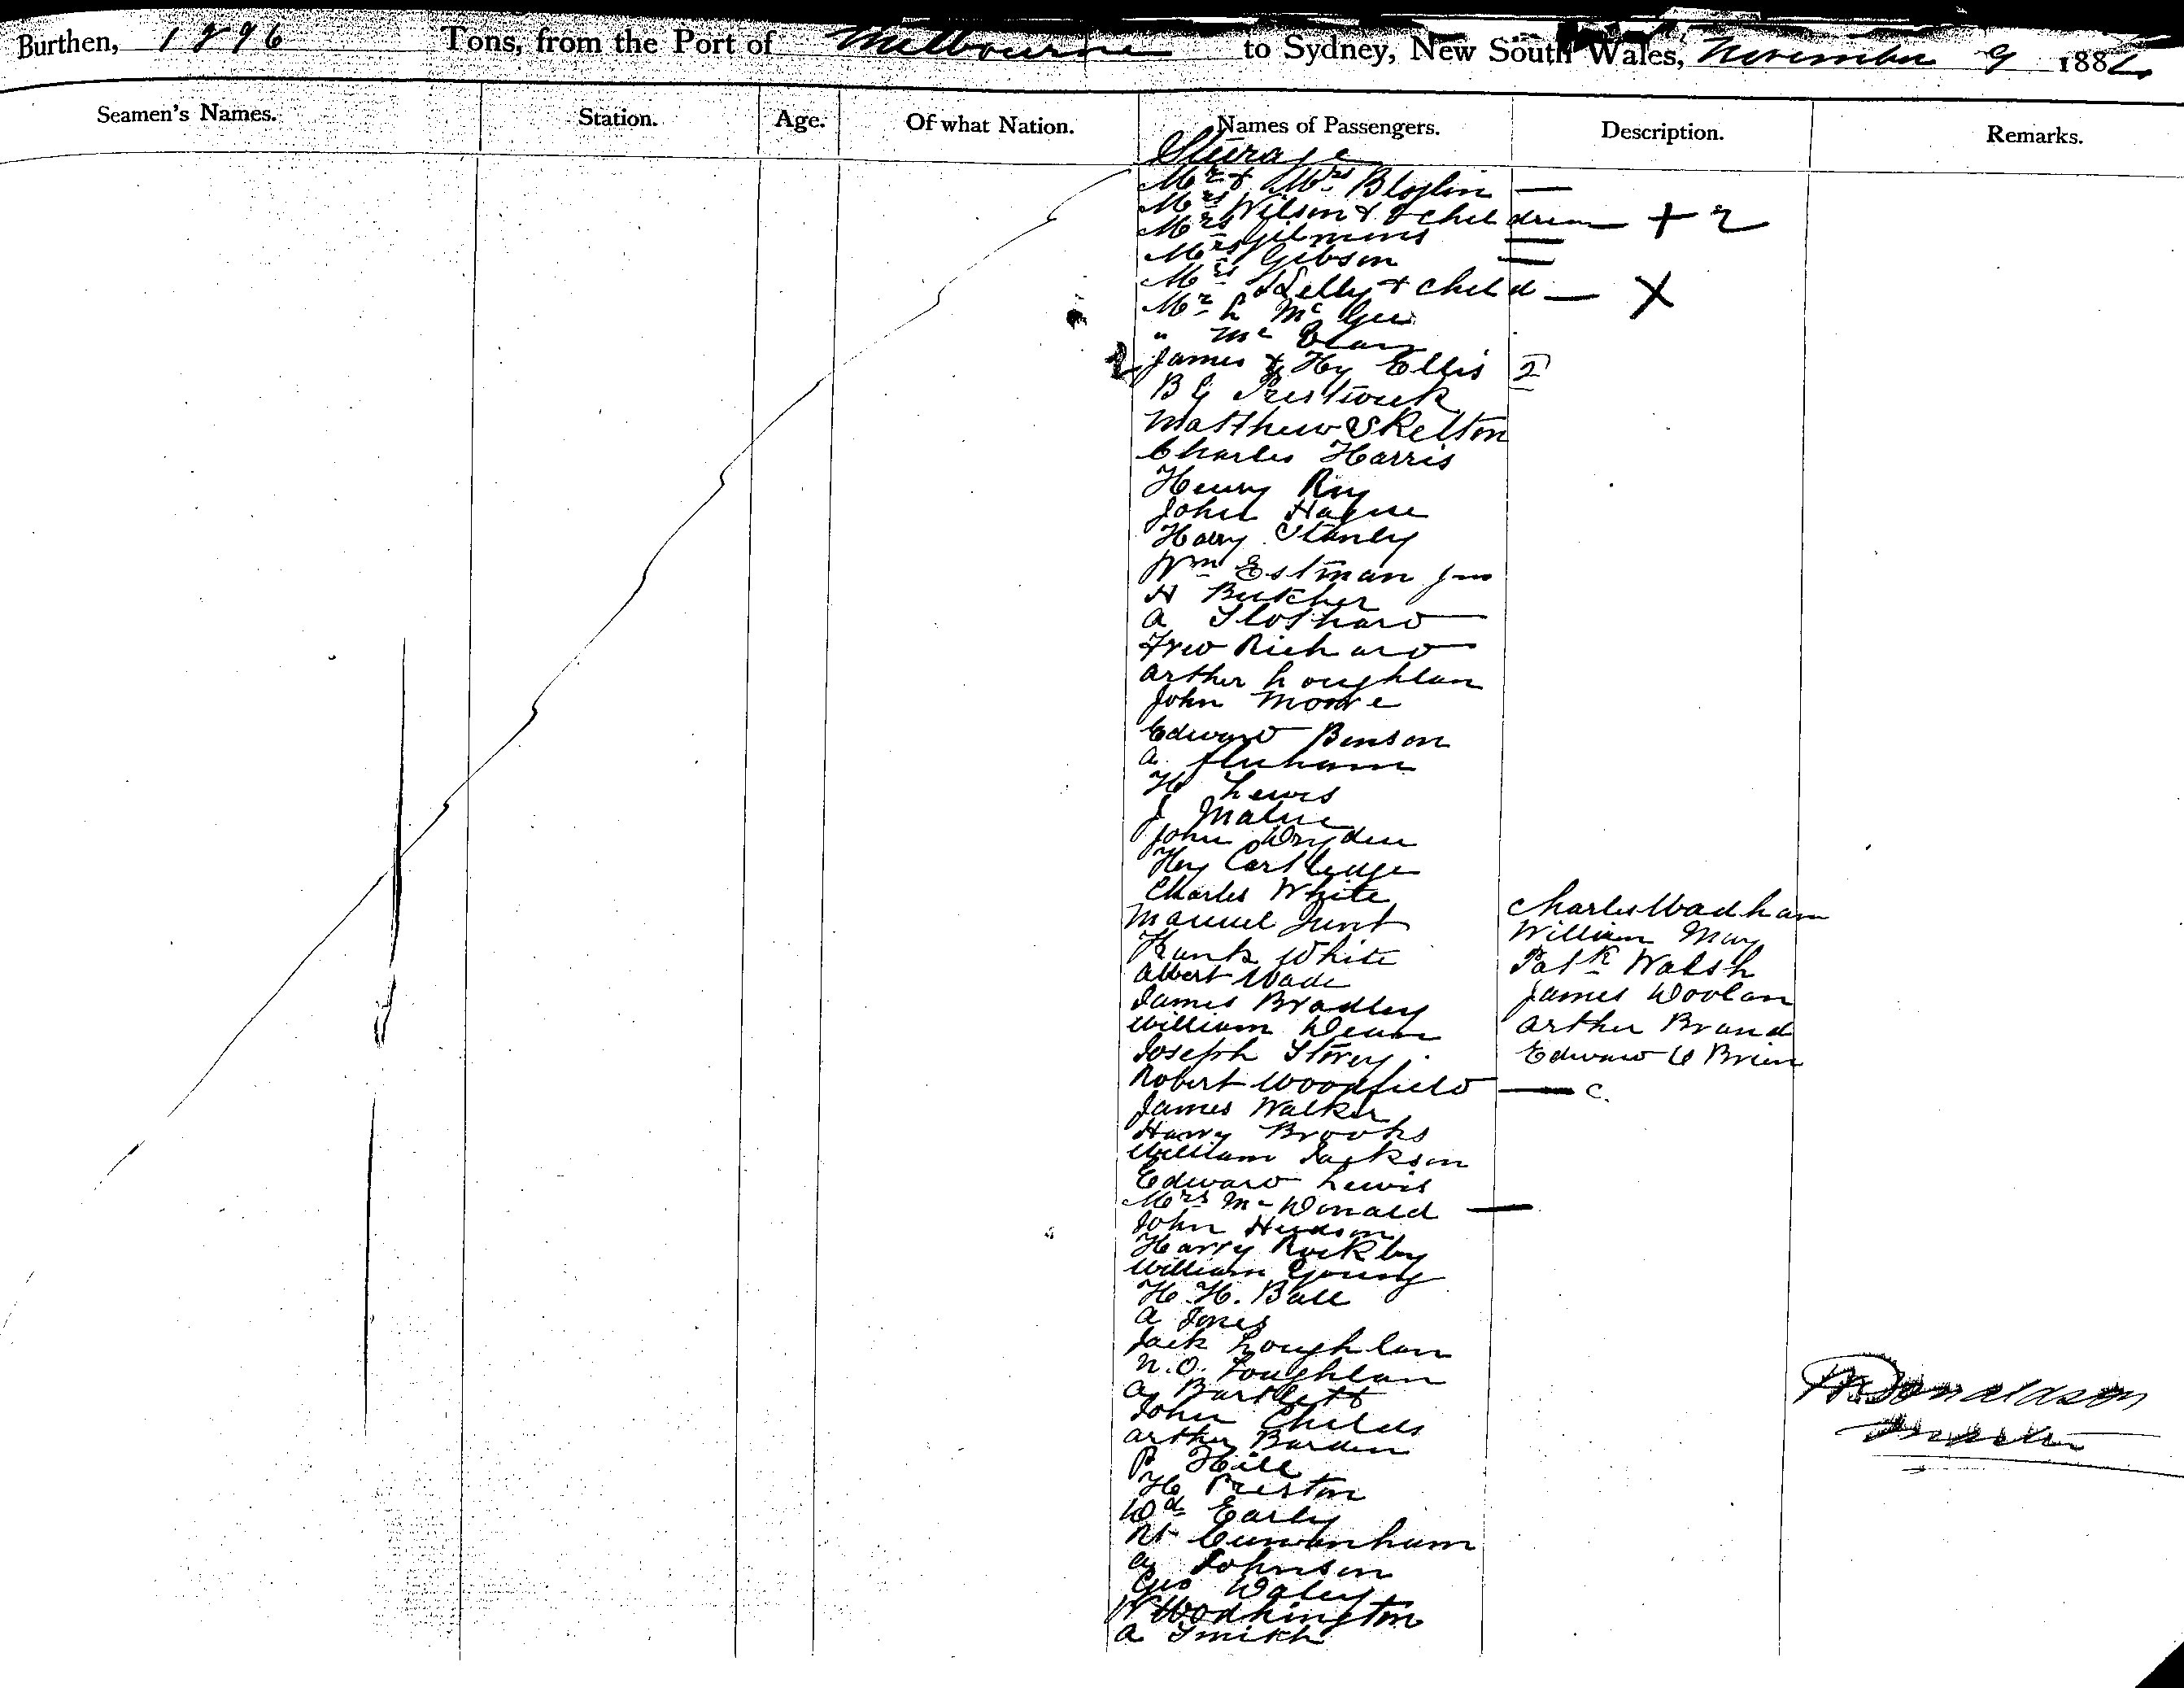 Burthen, 1896 Tons, from the Port of Melbourne to Sydney, New South Wales, November 9 188
Seamen's Names. Station. Age. Of what Nation. Names of Passengers. Description. Remarks.
Steerage
Mr & Mrs —
Mrs Wilson & 2 children — + 2
Mrs —
Mrs Gibson —
Mrs Kelly & child — X
Mr L McGee
" Mc
2 James & Hy Ellis 2
B G Prestwick
Matthew Skelton
Charles Harris
Henry Ray
John Hague
Harry Stanley
Wm Estman
H Butcher
A Slothard
Fred Richard
Arther Loughlan
John Moore
Edward Benson
A
H Lewis
J
John Dryden
Hy Cartledge
Charles White
Charles Wadham
Manuel
William May
Frank White
Patk Walsh
Albert Wade
James Woolan
James Bradley
Arthur Brand
William Dean
Edward O Brien
Joseph Storey
Robert Woodfield — c.
James Walker
Harry Brooks
William Jackson
Edward Lewis
Mrs McDonald —
John Hudson
Harry Rockby
William Young
H. H. Ball
A Jones
Jack Loughlan
N. O. Loughlan
A Bartlett
John Childs
Arthur Barden
P Hill
H Preston
Wd Early
Johnson
Geo Waley
W Wodhington
A Smith
Donaldson
Master